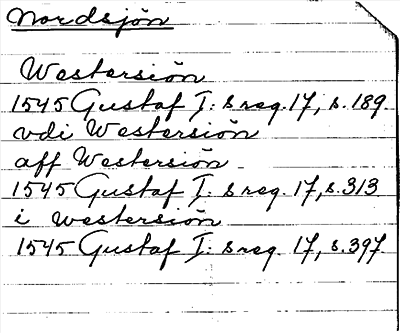 Nordsjön
Westersiön
1545 Gustaf I: s reg. 17, s. 189
vdi Westersiön
aff Westersiön
1545 Gustaf I: s reg. 17, s. 313
i westersiön
1545 Gustaf I: s reg. 17, s. 397